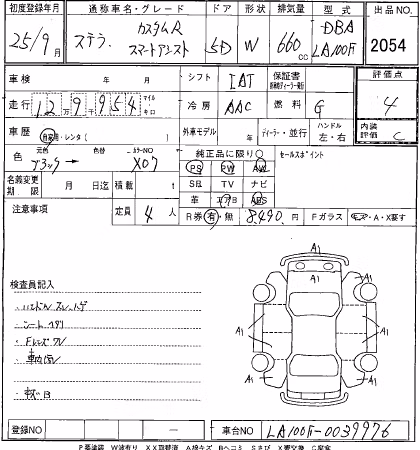 初度登録年月 通称車名・グレード ドア 形状 排気量 型式 出品NO.
25/9月 ステラ カスタムR スマートアシスト 5D W 660cc DBA LA100F 2054
車検 年 月 シフト IAT 保証書 評価点
走行 12万9千954 マイル キロ 冷房 AAC 燃料 G 4
車歴 自家用・レンタ( ) 外車モデル 年 ディーラー・並行 ハンドル 左・右 内装評価 C
色 元色 ブラック 色替 カラーNO X07 純正品に限り○ セールスポイント
PS PW AW
名義変更期限 月 日迄 積載 t SR TV ナビ
革 エアB ABS
注意事項 定員 4人 R券 有・無 8,490円 Fガラス A・X要す
検査員記入
ハンドルスレ、ハゲ
シート
Fレンズ
車内
A1
A1 A1
A1 A1
A1 A1
A1
登録NO － 車台NO LA100F-0039976
P要塗装 W波有り XX取替済 A線キズ Bヘコミ Sさび X要交換 C腐蝕